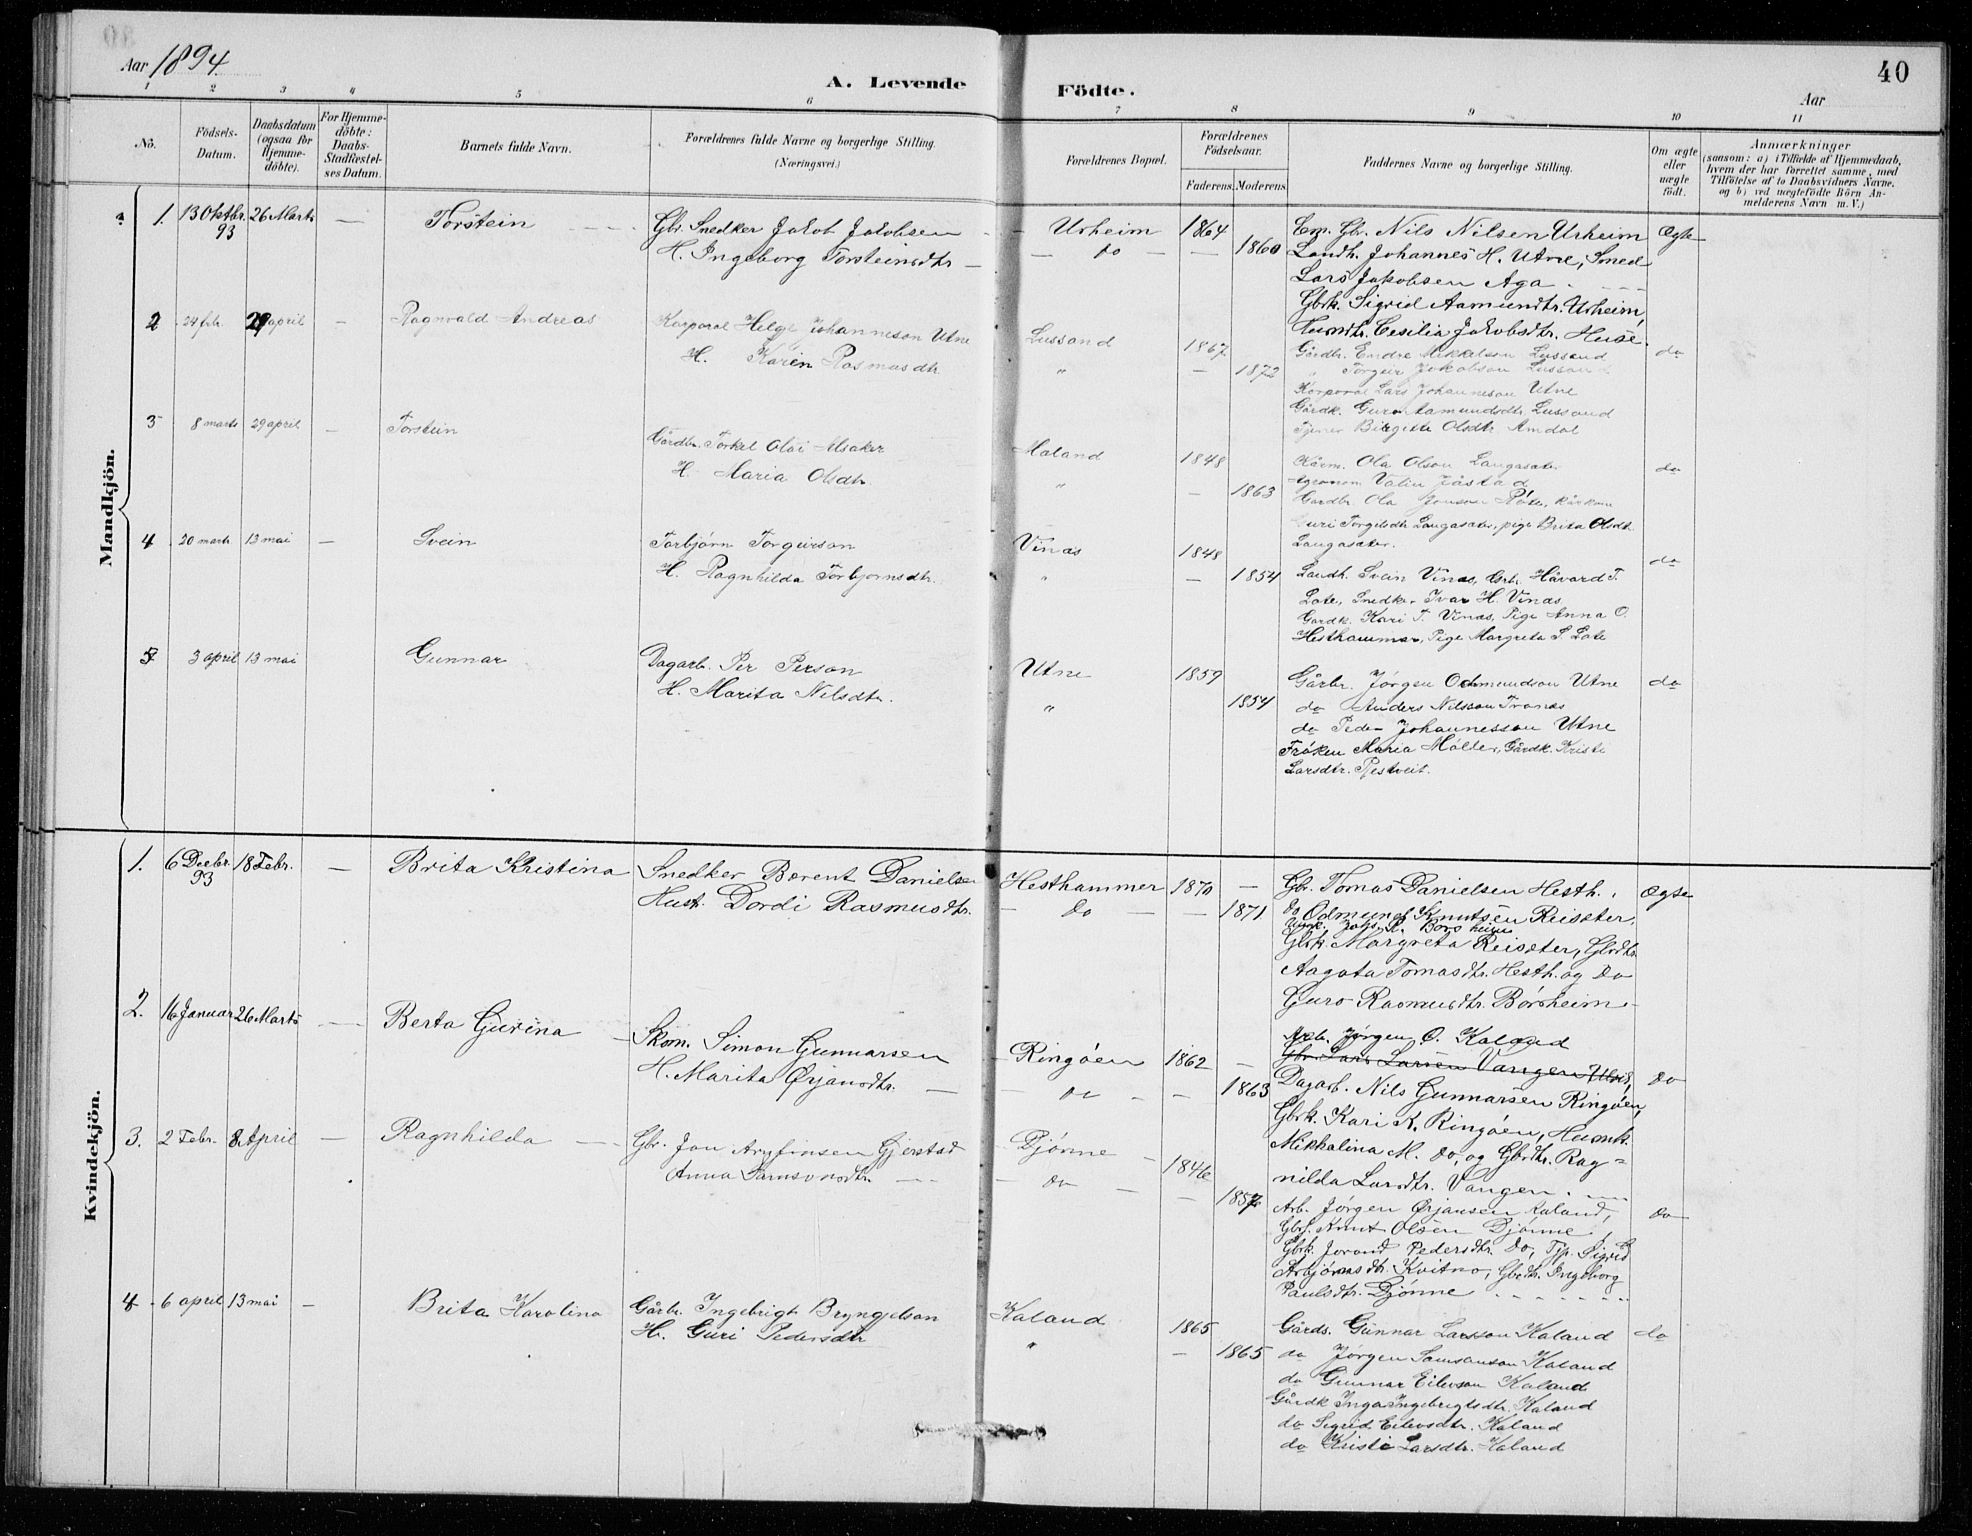 Aar 1894.
A. Levende Födte.
40
Aar
1 2 3 4 5 6 7 8 9 10 11
No.
Födsels-Datum.
Daabsdatum (ogsaa for Hjemme-döbte).
For Hjemme-döbte: Daabs-Stadfæstel-ses Datum.
Barnets fulde Navn.
Forældrenes fulde Navne og borgerlige Stilling.
(Næringsvei.)
Forældrenes Bopæl.
Forældrenes Födselsaar.
Faderens. Moderens.
Faddernes Navne og borgerlige Stilling.
Om ægte eller uægte födt.
Anmærkninger
(saasom: a) i Tilfælde af Hjemmedaab,
hvem der har forrettet samme, med
Tilföielse af to Daabsvidners Navne.
og b) ved uægtefödte Börn An-
melderens Navn m. V.)
Mandkjön.
1. 13 Oktbr. 93 26 Marts — Torstein
Gbr. Snedker Jakob Jakobsen
H. Ingeborg Torsteinsdtr
Urheim 1864
do — 1860
Em. Gbr. Nils Nilsen Urheim Ægte
Landh. Johannes H. Utne, Smed
Lars Jakobsen Aga.
Gbrk. Sigrid Aamundtr. Urheim,
Husmdtr. Cesilia Jakobsdtr. Huse.
2 24 febr. 29 april — Ragnvald Andreas
Korporal Helge Johanneson Utne
H. Karen Rasmusdtr.
Lussand 1867
" — 1872
Gårdbr. Endre Mikkelson Lussand do
" Torgeir Jakobson Lussand
Korporal Lars Johanneson Utne
Gårdk. Guro Aamundsdtr Lussand
Tjener Birgitta Olsdtr Amdal
3 8 marts 29 april — Torstein
Gårdbr. Torkel Olai Alsaker
H. Maria Olsdtr.
Maland 1848
" — 1863
Kårm. Ola Olson Langasæter do
Agronom Jåstad
Gardbr Ola Jonson Råte, kårkone
Guri Torgilsdtr Langasæter, pige Brita Olsdtr
Langasæter.
4 20 marts 13 mai — Svein
Torbjörn Torgeirson
H. Ragnhilda Torbjornsdtr.
Vinæs 1848
" — 1854
Landh. Svein Vinæs, Gbr. Håvard T. do
Lote, Snedker Ivar H. Vinæs
Gardk. Kari T. Vinæs, Pige Anna O.
Hesthammer, Pige Margreta S. Lote
5 3 april 13 mai Gunnar
Dagarb. Per Person
H. Marita Nilsdtr.
Utne 1859
" 1854
Gårbr. Jørgen Odmundson Utne do
do Anders Nilsson Tronæs
do Peder Johannesson Utne
Fröken Maria Möller, Gårdk. Kristi
Larsdtr.
Kvindekjön.
1. 6 Decbr. 93 18 Febr. — Brita Kristina
Snedker Berent Danielsen
Hust. Dordi Rasmusdtr.
Hesthammer 1870 —
do — 1871
Gbr. Tomas Danielsen Hesth. Ægte
do Odmund Knutsen Reisæter,
Børsheim
Gbrk. Margreta Reisæter, Gbrdtr.
Aagata Tomasdtr. Hesth. og do
Guro Rasmusdtr. Børsheim.
2. 16 Januar 26 Marts — Berta Gurina
Skom. Simon Gunnarsen
H. Marita Ørjansdtr.
Ringøen 1862 —
do — 1863
Arb. Jørgen O. Kaland
Gbr. Lars Larsen Vangen Ulvik, do
Dagarb. Nils Gunnarsen Ringøen,
Gbrk. Kari K. Ringøen, Husmk.
Mikkalina M. do, og Gbrdtr. Rag=
nilda Larsdtr. Vangen.
3. 2 Febr. 8 April — Ragnhilda
Gbr. Jon Arnfinsen Gjerstad
Anna Samsonsdtr.
Djønne — 1846
do — 1857
Arb. Jørgen Ørjansen Kaland, do
Gbrs. Knut Olsen Djønne,
Gbrk. Jorand Pedersdtr. do, Tjp. Sigrid
Arbjørnsdtr. Kvitno, Gbrdtr. Ingeborg
Paulsdtr. Djønne
4 6 april 13 mai — Brita Karolina
Gårbr. Ingebrigt Bryngjelson
H. Guri Pedersdtr
Kaland 1865
" — 1865
Gårds. Gunnar Larsson Kaland do
do Jørgen Samsonson Kaland
do Gunnar Eilevson Kaland
Gårdk Inga Ingebrigtsdtr. Kaland
do Sigrid Eilevsdtr. Kaland
do Kristi Larsdtr. Kaland